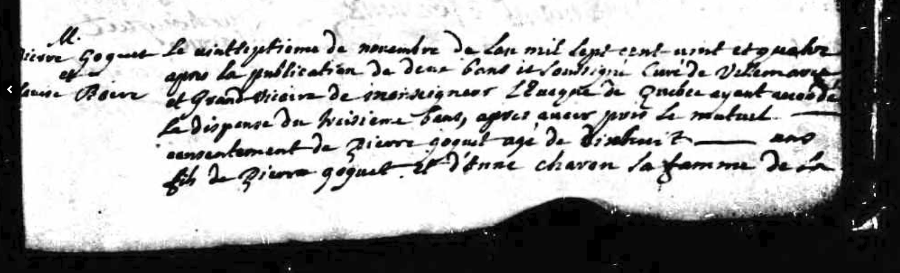 M.
Pierre Goguet
et
Louise Boere
Le vintseptieme de novembre de Lan mil Sept cent vint et quatre
apres la publication de deux bans je Soussigné Curé de Villemarie
et Grand Vicaire de monseigneur L'Eveque de Quebec ayant accordé
La dispense du troisieme bans, apres avoir pris le mutuel
consentement de Pierre goguet agé de dixhuit ans
fils de Pierre goguet et d'Anne charon Sa famme de La